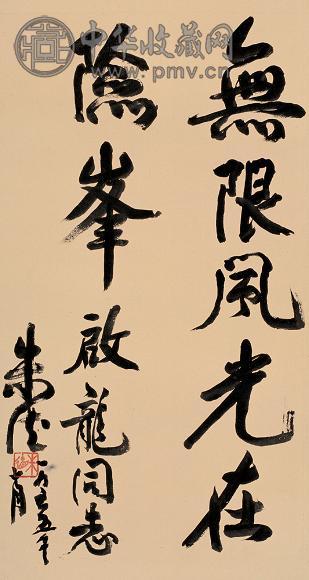 中华收藏网
www.pmv.cn
無限風光在
險峯啟龍同志
朱德
一九六五年